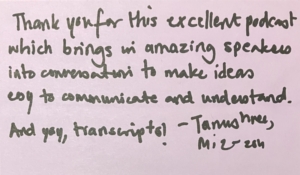 Thank you for this excellent podcast
which brings in amazing speakers
into conversations to make ideas
easy to communicate and understand.
And yay, transcripts! -